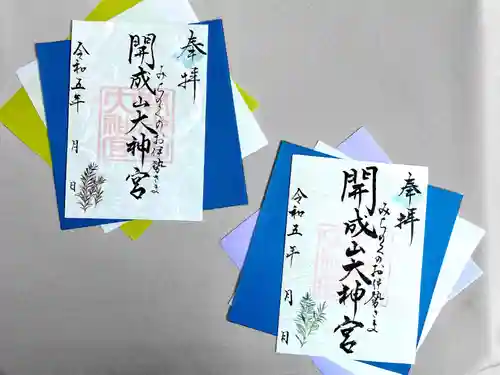 奉拝
開成山大神宮
みちのくのお伊勢さま
令和五年 月 日
奉拝
開成山大神宮
みちのくのお伊勢さま
令和五年 月 日